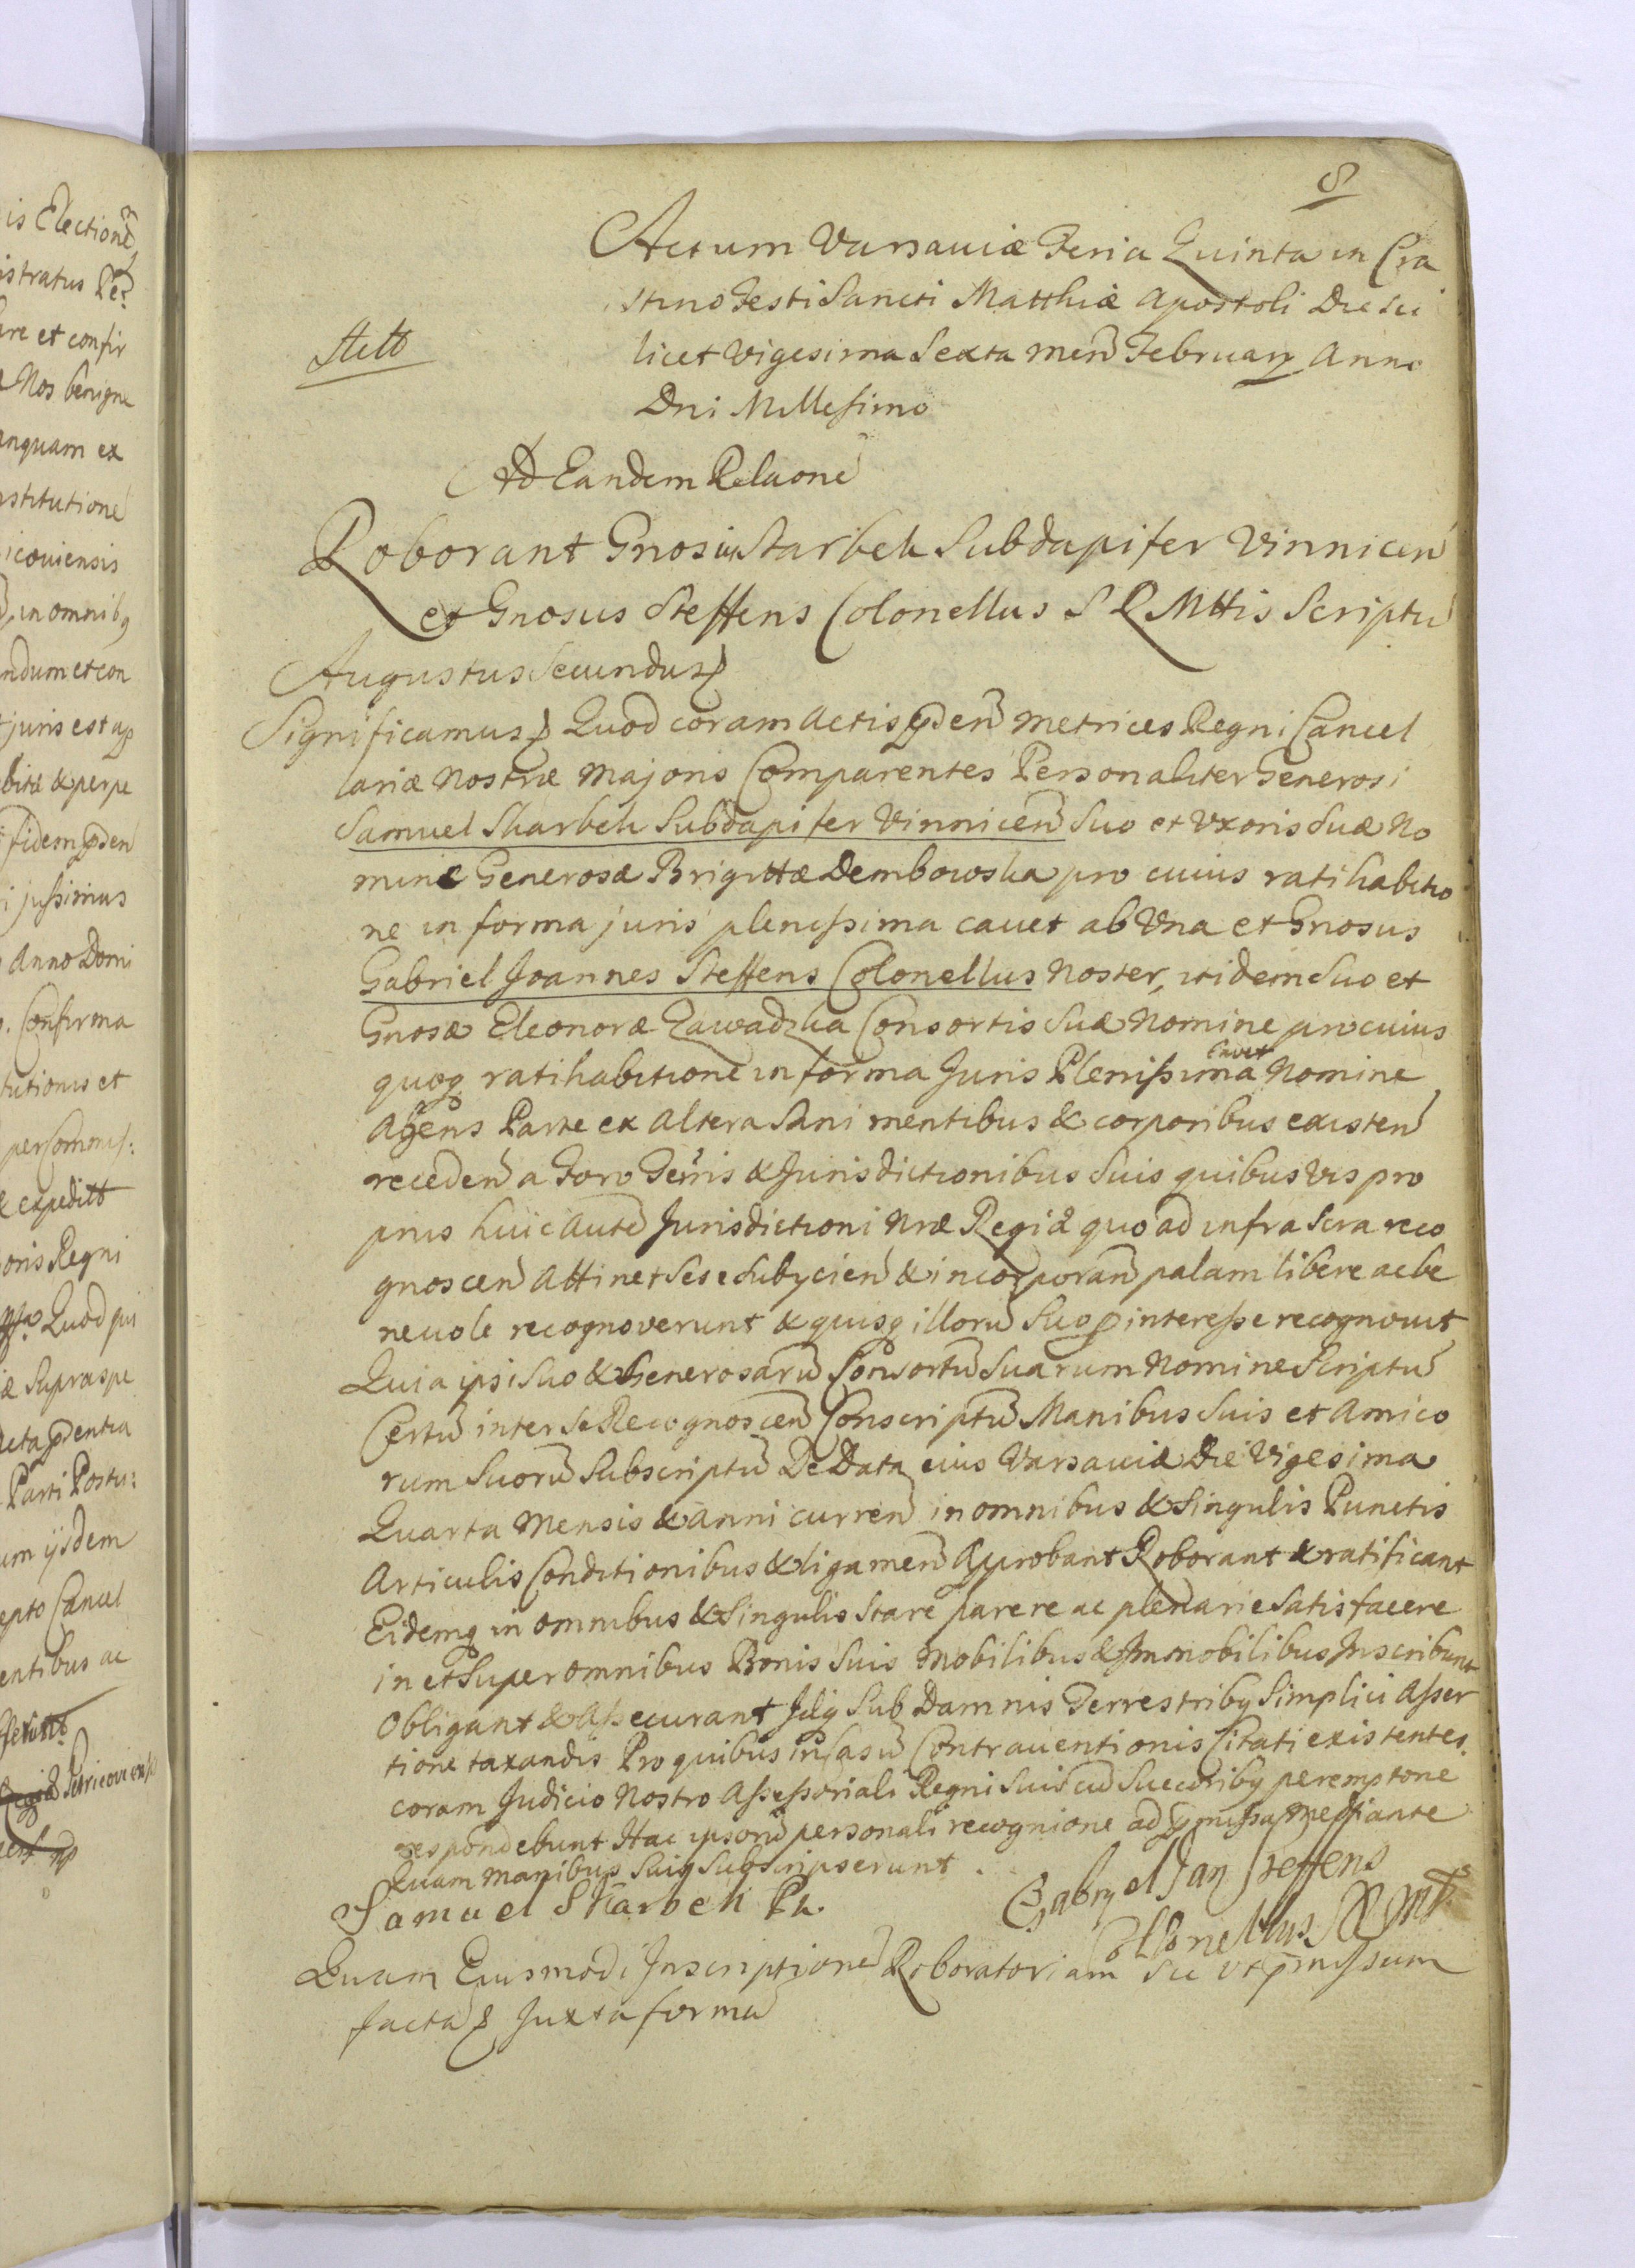 8
Actum Varsaviæ Feria Quinta in Cra
stino Festi Sancti Matthiæ Apostoli Die sci
licet Vigesima Sexta Men Februarÿ Anno
Dni Millesimo
Ad Eandem Relaone
Roborant Gnosi Skarbek Subdapifer Vinnicen
et Gnosus Steffens Colonellus S R Mttis Scriptu
Augustus Secundus
Significamus Quod coram Actis pden Metrices Regni Cancel
lariæ Nostræ Majoris Comparentes Personaliter Generosi
Samuel Skarbek Subdapifer Vinnicen Suo et Uxoris Suæ No
mine Generosæ Brigittæ Dembowska pro cuius ratihabitio
ne in forma juris plenissima cavet ab Una et Gnosus
Gabriel Joannes Steffens Colonellus Noster, itidem Suo et
Gnosæ Eleonoræ Zawadzka Consortis Suæ Nomine pro cuius
quoq ratihabitione in forma Juris Plenissima cavet Nomine
Agens Parte ex Altera Sani mentibus & corporibus existen
receden a Foro Terris & Jurisdictionibus Suis quibusvis pro
prijs huic Aute Jurisdictioni Nræ Regiæ quo ad infra Scra reco
gnoscen Attinet Sese Subijcien & incorporan palam libere ac be
nevole recognoverunt & quisq illoru Suo p interesse recognovit
Quia ipsi Suo & Generosaru Consortu Suarum Nomine Scriptu
Certu inter Se Recognoscen Conscriptu Manibus Suis et Amico
rum Suoru Subscriptu De Data eius Varsaviæ Die Vigesima
Quarta Mensis & Anni curren in omnibus & Singulis Punctis
Articulis Conditionibus & ligamen Approbant Roborant & ratificant
Eidemq in omnibus & Singulis Stare parere ac plenarie Satisfacere
in et Super omnibus Bonis Suis Mobilibus & Immobilibus Inscribunt
Obligant & Assecurant Idq Sub Damnis Terrestribq Simplici Asser
tione taxandis Pro quibus in Casu Contraventionis Citati existentes
coram Judicio Nostro Assessoriali Regni Suis cu Succoribq peremptorie
respondebunt Hac ipsoru personali recognione ad pmissa Mediante
Quam Manibus Suis Subscripserunt.
Samuel Skarbek
Gabryel Jan Steffens
Collonellus S R M
Quam Eiusmodi Inscriptione Roboratoriam Sic ut pmissum
facta Juxta forma
is Electione
istratus
are et confir
Nos benigne
anquam ex
nstitutione
icoviensis
in omnibq
ndum et con
juris est
bita & perpe
fidem pden
i jussimus
Anno Domi
Confirma
tutionis et
per Commis:
& expeditt
oris Regni
Quod qui
æ Supraspe
Acta pdentia
Parti Postu:
um ijsdem
epto Cancel
entibus ac